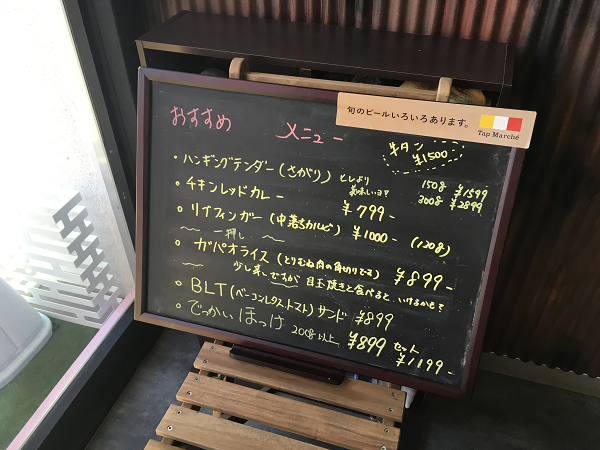 旬のビールいろいろあります。
Tap Marché
おすすめ メニュー
牛タン
¥1500
・ハンギングテンダー(さがり) 150g ¥1599
美味しいヨ? 300g ¥2899
・チキンレッドカレー ¥799-
・リブフィンガー(中落ちカルビ) ¥1000- (120g)
〜一押し〜
・ガパオライス(とりむね肉の角切りです) ¥899-
少し辛いですが 目玉焼きと食べると いけるかも?
・BLT(ベーコンレタストマト)サンド ¥899
・でっかいほっけ 200g以上 ¥899 セット
¥1199-